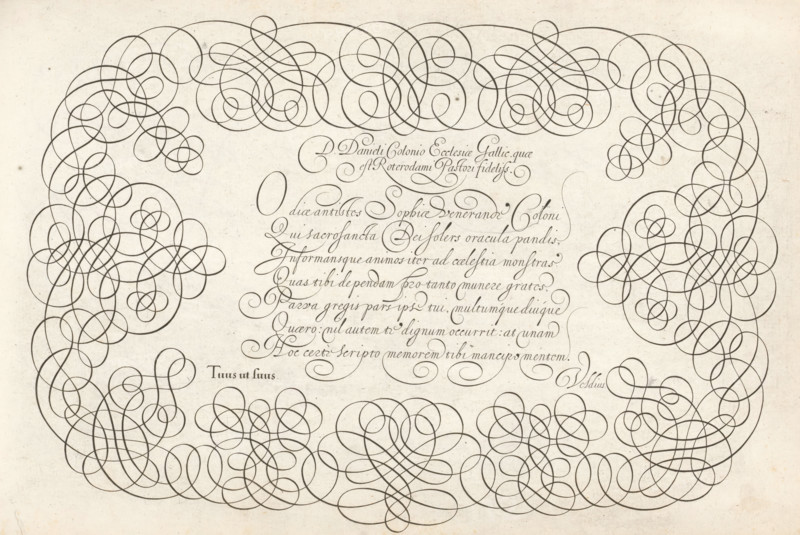 D. Danieli Colonio Ecclesiæ Gallic. quæ
est Roterodami Pastori fideliss.
O diæ antistes Sophiæ venerande Coloni
Qui sacrosancta Dei solers oracula pandis,
Informansque animos iter ad cœlestia monstras
Quas tibi dependam pro tanto munere grates,
Parva gregis pars ipse tui, multumque diuque
Quæro: nil autem te dignum occurrit: at unam
Hoc certe scripto memorem tibi mancipo mentem.
Tuus ut suus
Veldius